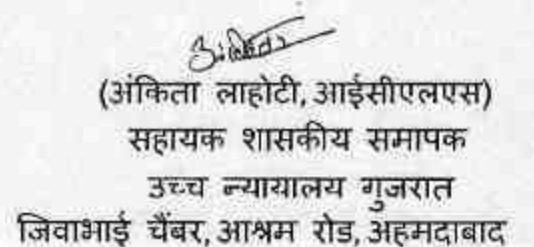 (अंकिता लाहोटी, आईसीएलएस)
सहायक शासकीय समापक
उच्च न्यायालय गुजरात
जिवाभाई चैंबर, आश्रम रोड, अहमदाबाद